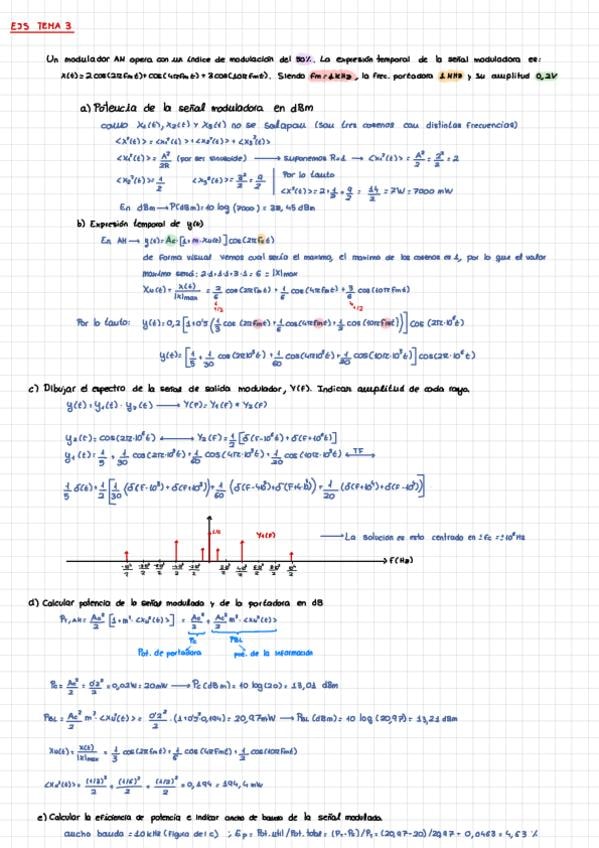 EJS TEMA 3
Un modulador AM opera con un índice de modulación del 50%. La expresión temporal de la señal moduladora es:
x(t)=2cos(2πfmt)+cos(4πfmt)+3cos(10πfmt). Siendo fm=1kHz, la frec. portadora 1MHz y su amplitud 0,2V
a) Potencia de la señal moduladora en dBm
como X₁(t), X₂(t) y X₃(t) no se solapan (son tres cosenos con distintas frecuencias)
<x²(t)> = <x₁²(t)>+<x₂²(t)>+<x₃²(t)>
<x₁²(t)> = A²/2R (por ser sinusoide) → suponemos R=1 → <x₁²(t)> = A²/2 = 2²/2 = 2
<x₂²(t)> = 1/2 <x₃²(t)> = 3²/2 = 9/2 Por lo tanto
<x²(t)> = 2+1/2+9/2 = 14/2 = 7W = 7000 mW
En dBm → P(dBm) = 10 log (7000) = 38,45 dBm
b) Expresión temporal de y(t)
En AM → y(t) = Ac·[1+m·Xn(t)] cos(2πfct)
de forma visual vemos cual sería el maximo, el maximo de los cosenos es 1, por lo que el valor
maximo será: 2·1+1·1+3·1 = 6 = |x|max
Xn(t) = x(t)/|x|max = 2/6 cos(2πfmt)+1/6 cos(4πfmt)+3/6 cos(10πfmt)
Por lo tanto: y(t)=0,2[1+0'5(1/3 cos(2πfmt)+1/6 cos(4πfmt)+1/2 cos(10πfmt))] cos(2π·10⁶t)
y(t)=[1/5+1/30 cos(2π10³t)+1/60 cos(4π10³t)+1/20 cos(10π·10³t)] cos(2π·10⁶t)
c) Dibujar el espectro de la señal de salida modulador, Y(f). Indican amplitud de cada raya.
y(t)=y₁(t)·y₂(t) → Y(f)=Y₁(f)*Y₂(f)
y₂(t)=cos(2π·10⁶t) ↔ Y₂(f)=1/2[δ(f-10⁶)+δ(f+10⁶)]
y₁(t)=1/5+1/30 cos(2π·10³t)+1/60 cos(4π·10³t)+1/20 cos(10π·10³t) TF
Y₁(f)
→ La solución es esto centrado en ±fc=±10⁶Hz
f(Hz)
d) Calcular potencia de la señal modulada y de la portadora en dB
Pt,AM = Ac²/2 [1+m²·<xn²(t)>] = Ac²/2 + Ac²/2 m²·<xn²(t)>
Pc PBL
Pot. de portadora pot. de la información
Pc = Ac²/2 = 0'2²/2 = 0,02W = 20mW → Pc(dBm) = 10 log(20) = 13,01 dBm
PBL = Ac²/2 m²·<xn²(t)> = 0'2²/2·(1+0'5²·0,194) = 20,97mW → PBL(dBm) = 10 log(20,97) = 13,21 dBm
Xn(t) = x(t)/|x|max = 1/3 cos(2πfmt)+1/6 cos(4πfmt)+1/2 cos(10πfmt)
<xn²(t)> = (1/3)²/2+(1/6)²/2+(1/2)²/2 = 0,194 = 194,4 mW
e) Calcular la eficiencia de potencia e indicar ancho de banda de la señal modulada.
ancho banda = 10kHz (figura del c) ; Ep = Pot.util/Pot.total = (Pt-Pc)/Pt = (20,97-20)/20,97 = 0,0463 = 4,63 %